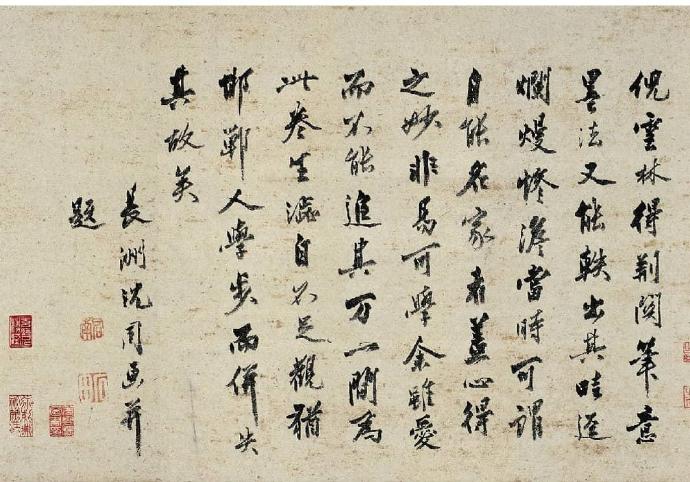 倪雲林得荊関筆意
墨法又能軼出其畦逕
爛熳慘澹當時可謂
自能名家者蓋心得
之妙非易可學余雖愛
而不能追其万一間為
此卷生澁自不足觀猶
邯鄲人學步而併失
其故矣
長洲沈周畫并
題